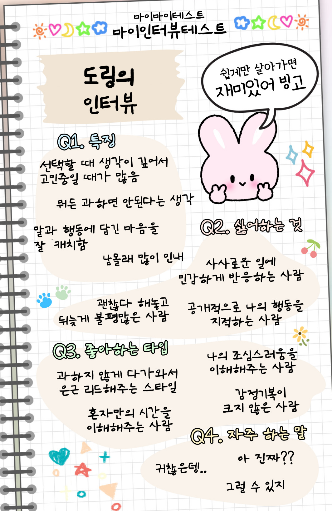 마이마이테스트
마이인터뷰테스트
도림의
인터뷰
쉽게만 살아가면
재미있어 빙고
Q1. 특징
선택할 때 생각이 깊어서
고민중일 때가 많음
뭐든 과하면 안된다는 생각
말과 행동에 담긴 마음을
잘 캐치함
남몰래 많이 인내
Q2. 싫어하는 것
사사로운 일에
민감하게 반응하는 사람
괜찮다 해놓고
뒤늦게 불평많은 사람
공개적으로 나의 행동을
지적하는 사람
Q3. 좋아하는 타입
과하지 않게 다가와서
은근 리드해주는 스타일
나의 조심스러움을
이해해주는 사람
혼자만의 시간을
이해해주는 사람
감정기복이
크지 않은 사람
Q4. 자주 하는 말
귀찮은데..
아 진짜??
그럴 수 있지